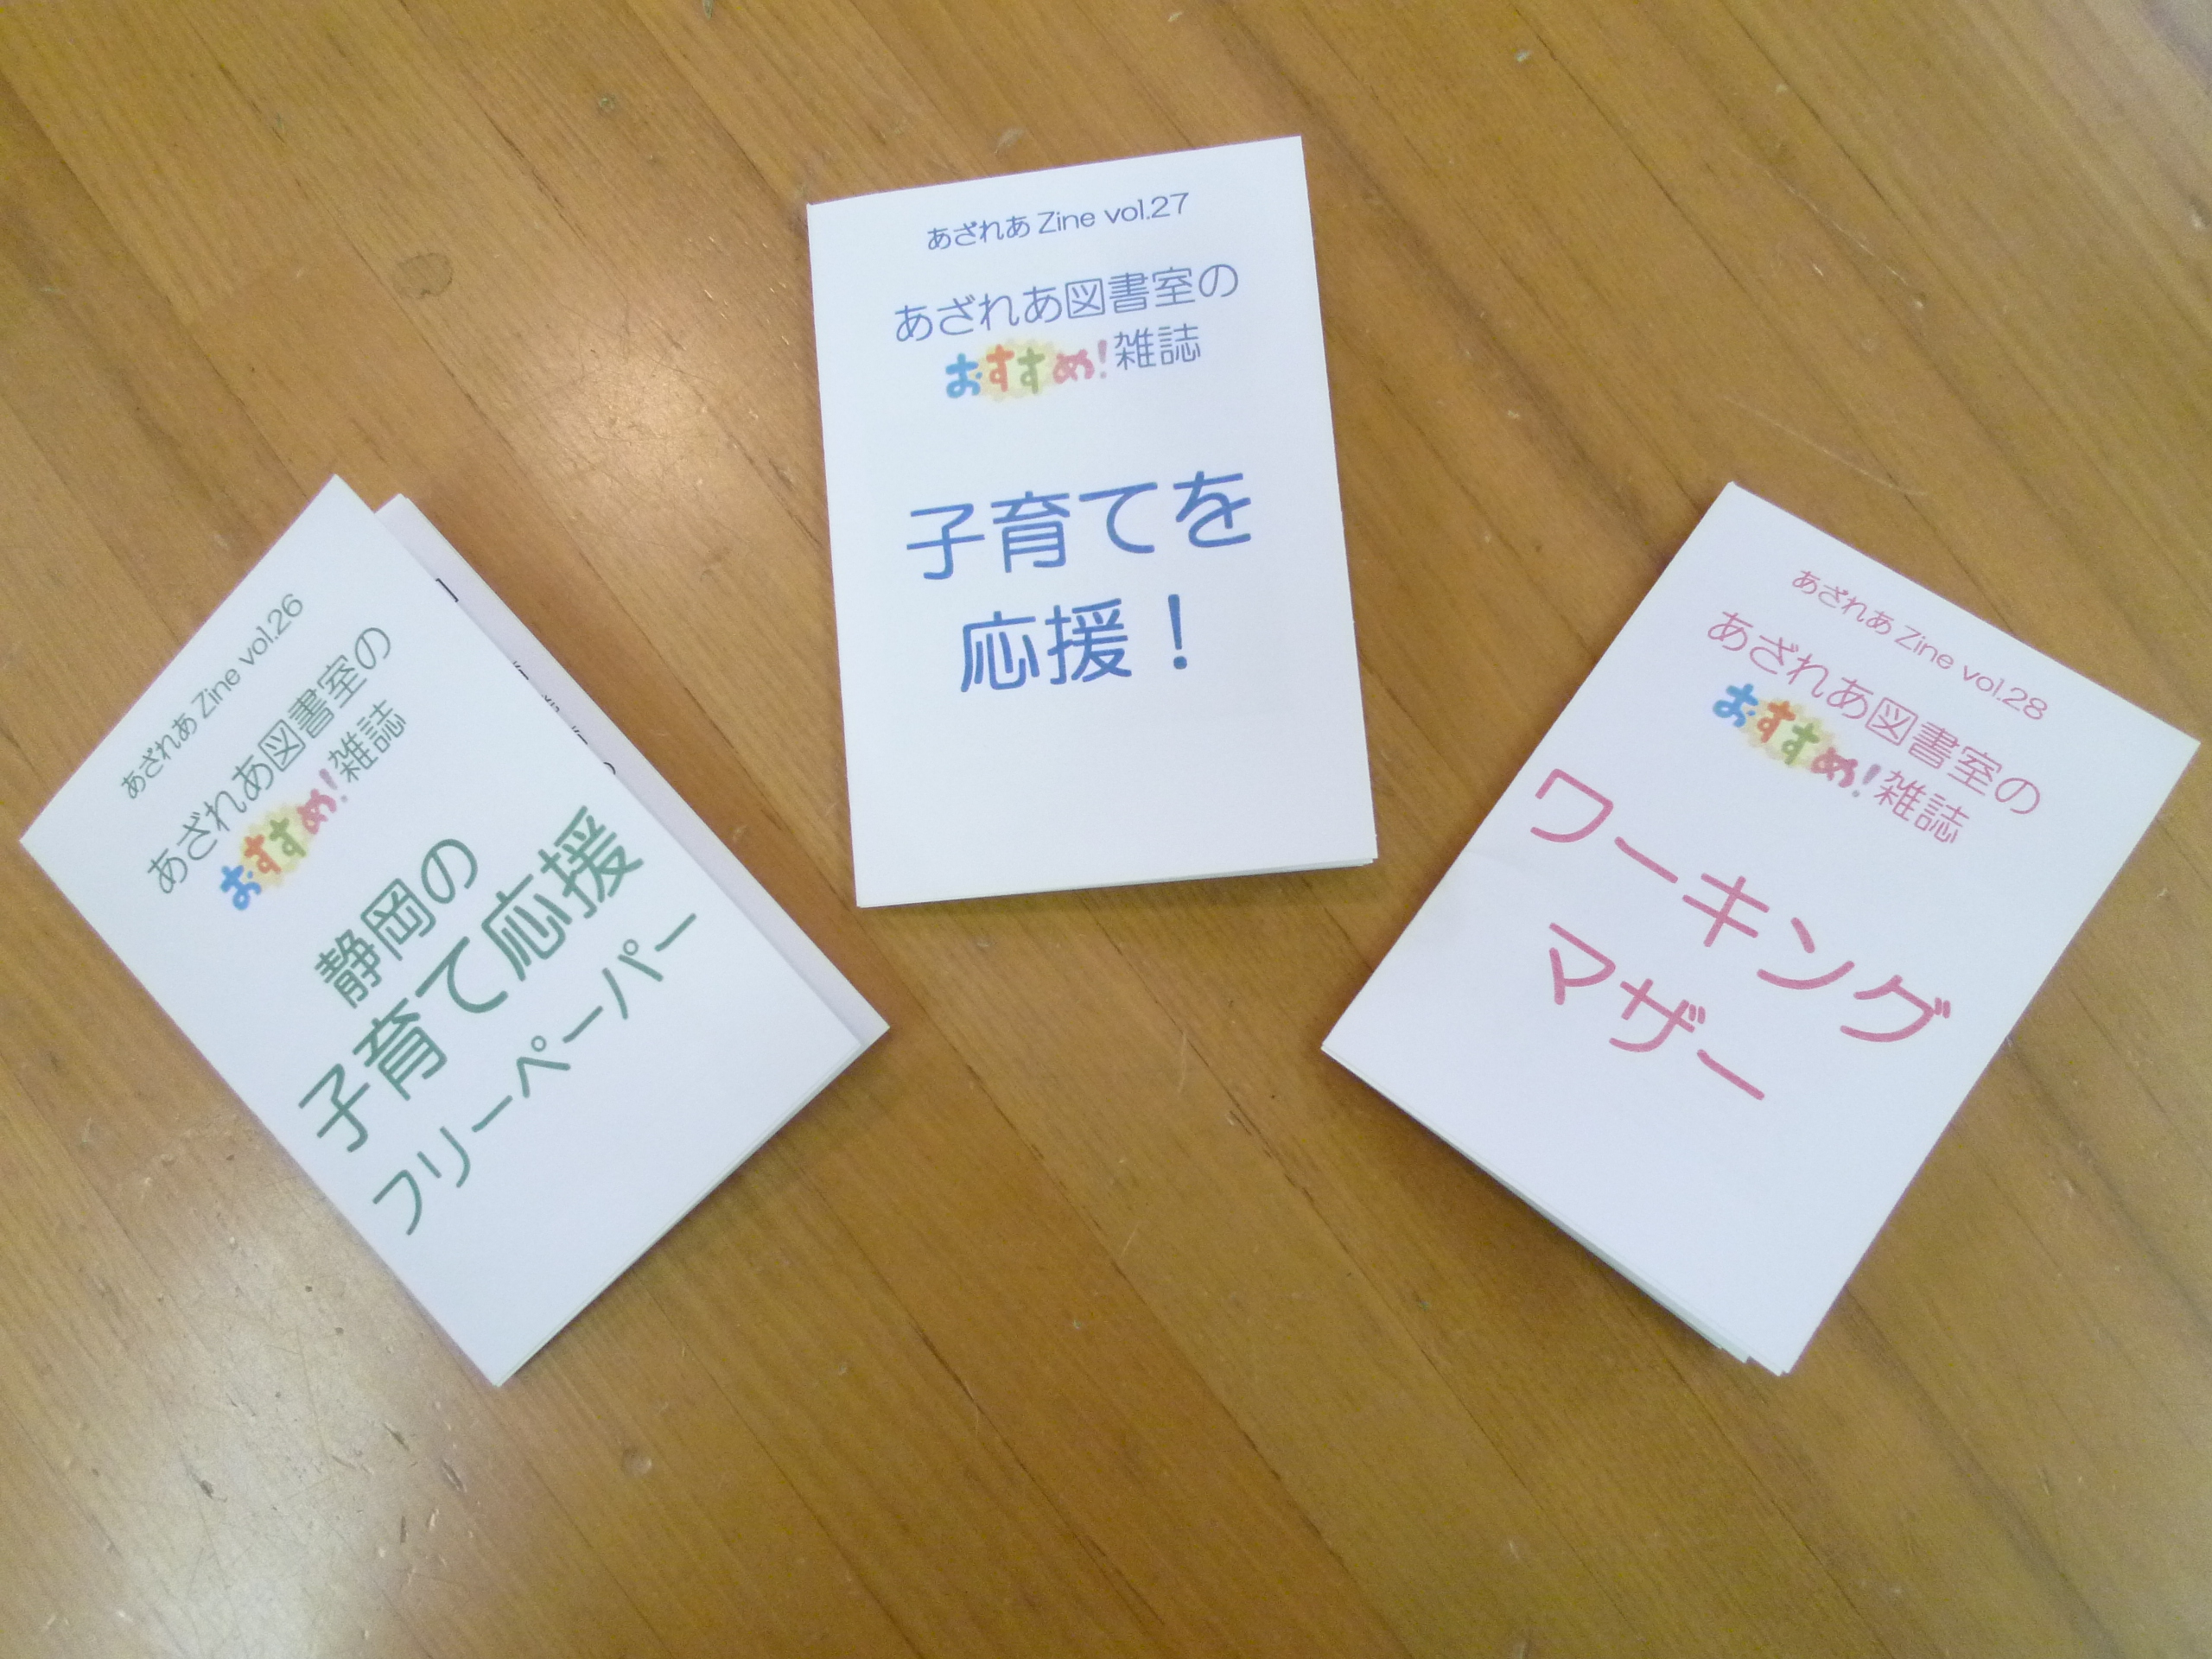 あざれあ Zine vol.26
あざれあ図書室の
おすすめ!雑誌
静岡の
子育て応援
フリーペーパー
あざれあ Zine vol.27
あざれあ図書室の
おすすめ!雑誌
子育てを
応援！
あざれあ Zine vol.28
あざれあ図書室の
おすすめ!雑誌
ワーキング
マザー